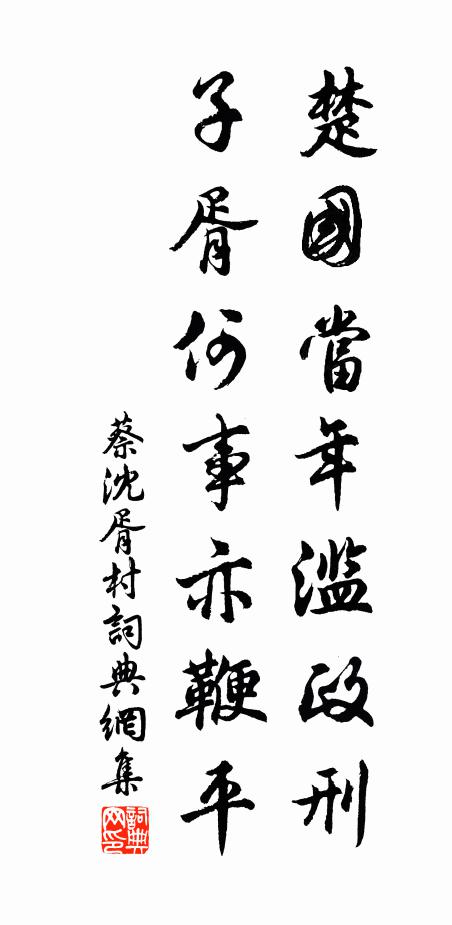 楚國當年濫政刑
子胥何事亦鞭平
蔡沈胥村詞典網集
詞典网印